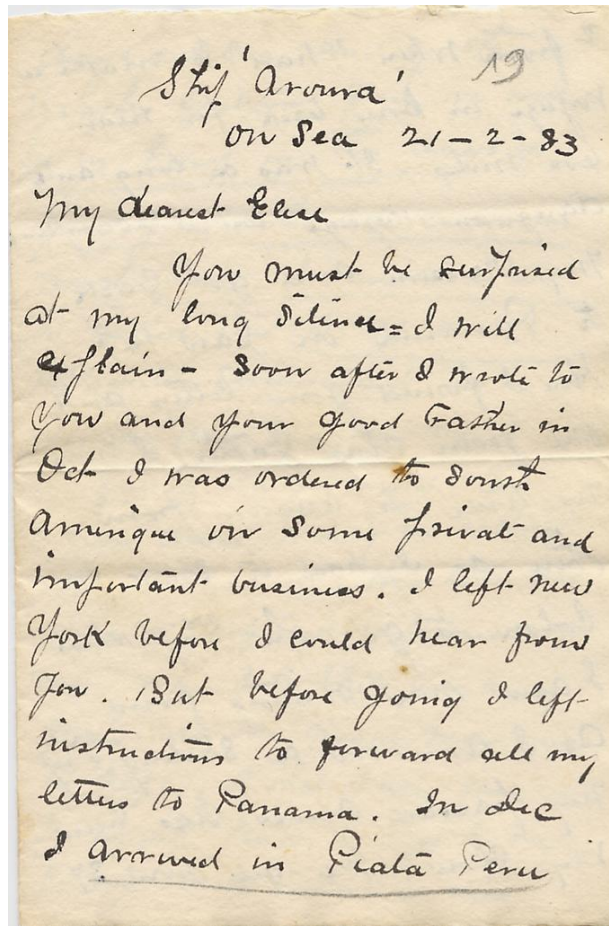 19
Ship 'Aroura'
on Sea 21-2-83
My dearest Elise
You must be surprised
at my long Silence = I will
explain - Soon after I wrote to
you and your good Father in
Oct I was ordered to South
Amerique on Some privat and
important business. I left new
York before I could hear from
you. But before going I left
instructions to forward all my
letters to Panama. In Dec
I arrived in Piata Peru